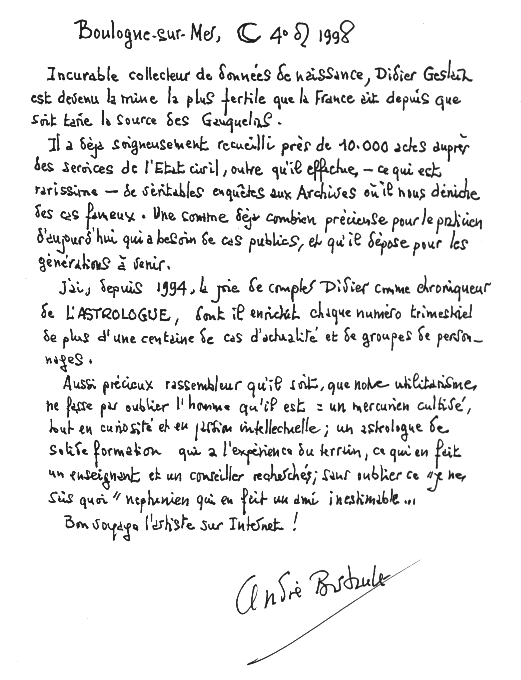 Boulogne-sur-Mer, ☾ 4° ♌ 1998
Incurable collecteur de données de naissance, Didier Geslain
est devenu la mine la plus fertile que la France ait depuis que
soit tarie la source des Gauquelin.
Il a déjà soigneusement recueilli près de 10.000 actes auprès
des services de l'Etat civil, outre qu'il effectue, – ce qui est
rarissime – de véritables enquêtes aux Archives où il nous déniche
des cas fameux. Une somme déjà combien précieuse pour le praticien
d'aujourd'hui qui a besoin de cas publics, et qu'il dépose pour les
générations à venir.
J'ai, depuis 1994, la joie de compter Didier comme chroniqueur
de L'ASTROLOGUE, dont il enrichit chaque numéro trimestriel
de plus d'une centaine de cas d'actualité et de groupes de person-
nages.
Aussi précieux rassembleur qu'il soit, que notre utilitarisme,
ne fasse pas oublier l'homme qu'il est : un mercurien cultivé,
tout en curiosité et en passion intellectuelle ; un astrologue de
solide formation qui a l'expérience du terrain, ce qui en fait
un enseignant et un conseiller recherchés ; sans oublier ce "je ne,
sais quoi" neptunien qui en fait un ami inestimable...
Bon voyage l'artiste sur Internet !
André Barbault